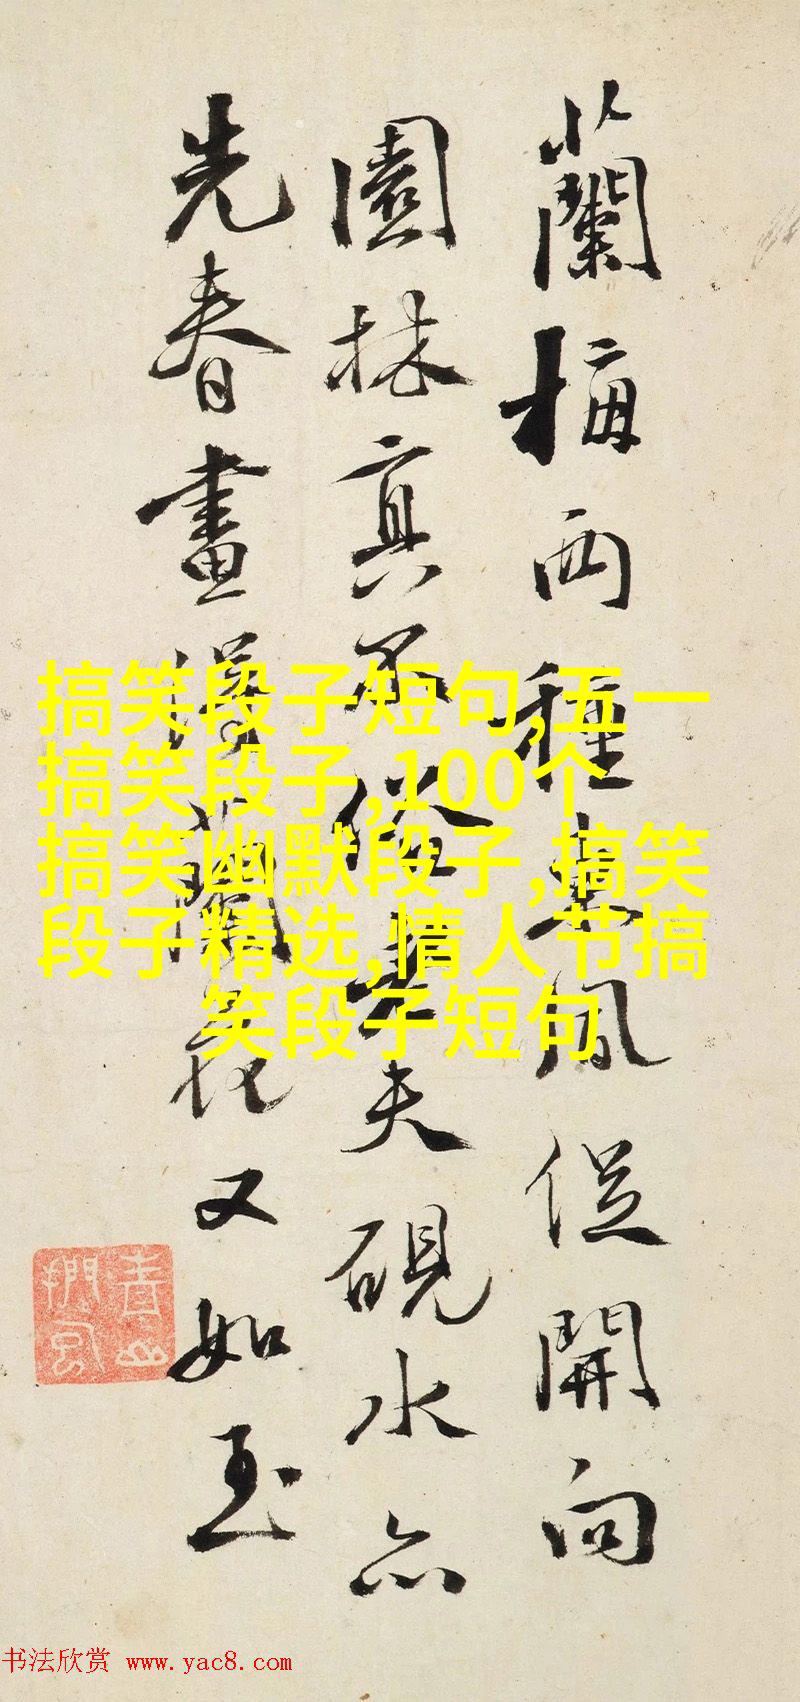 蘭梅兩種風從開向
園林真不俗老夫硯水亦
先春畫得蘭花又如玉
搞笑段子短句,五一
搞笑段子,100个
搞笑幽默段子,搞笑
段子精选,情人节搞
笑段子短句
书法欣赏 www.yac8.com